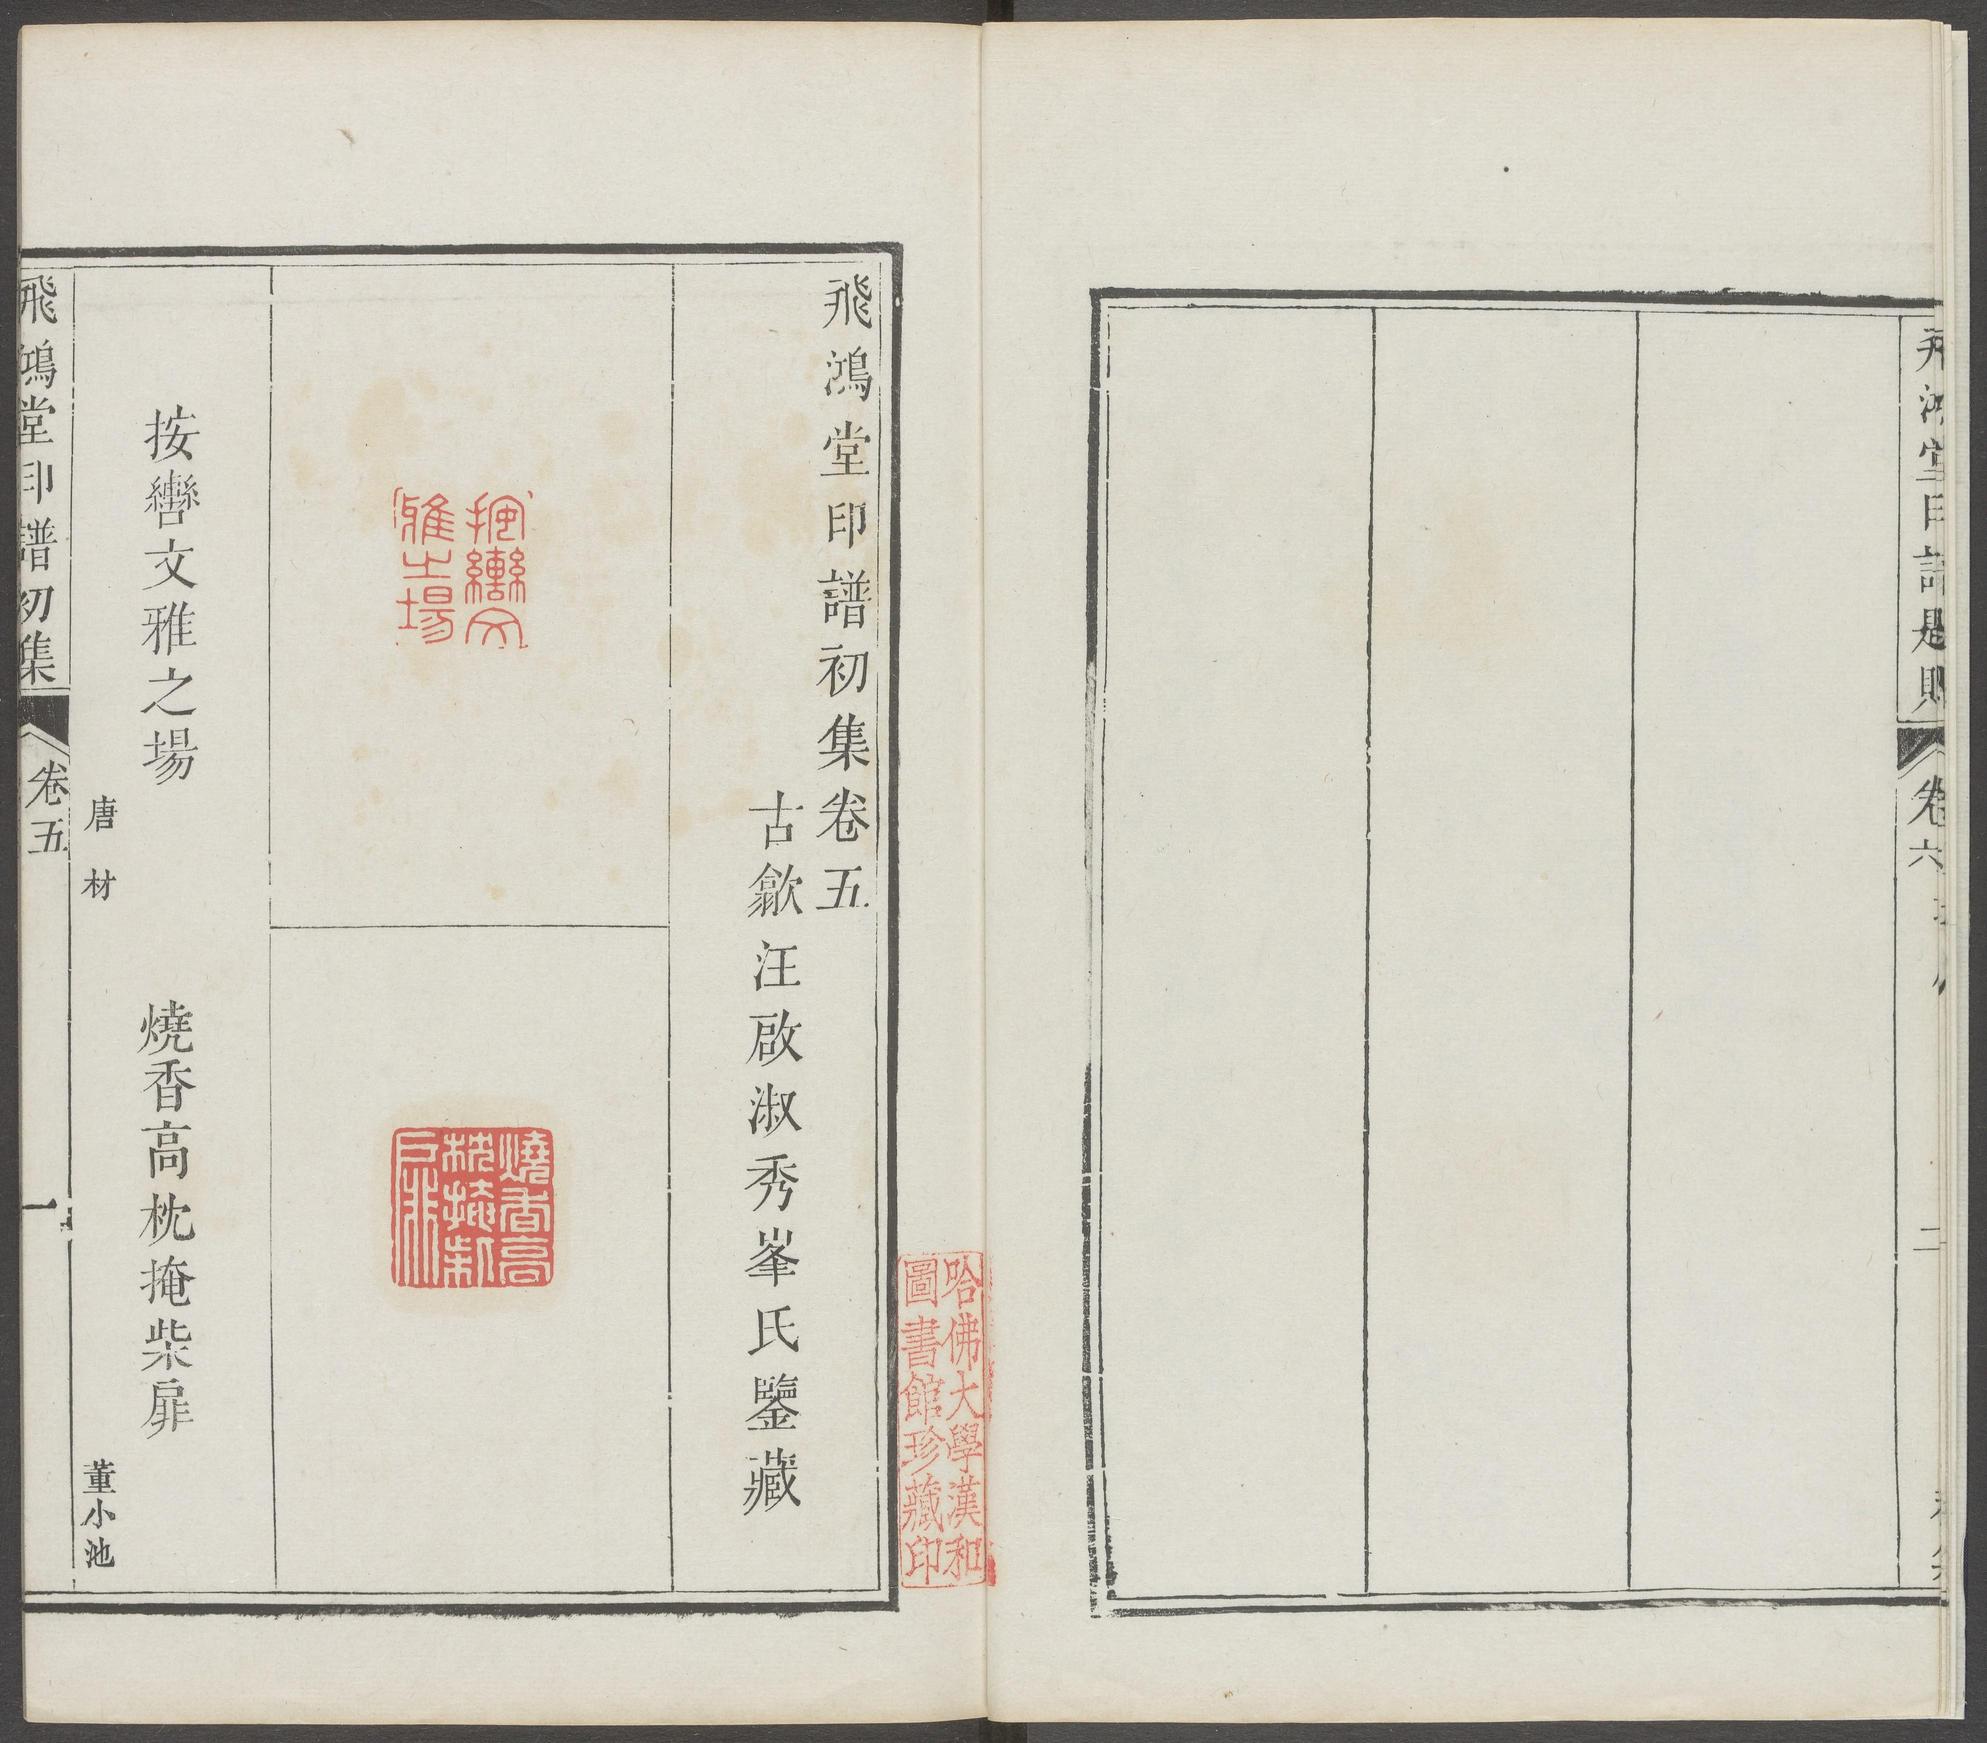 卷六
二
飛鴻堂印譜初集卷五
古歙汪啟淑秀峯氏鑒藏
哈佛大學漢和
圖書館珍藏印
按轡文
雅之場
燒香高
枕掩柴
扉
按轡文雅之場
唐材
燒香高枕掩柴扉
董小池
飛鴻堂印譜初集
卷五
一